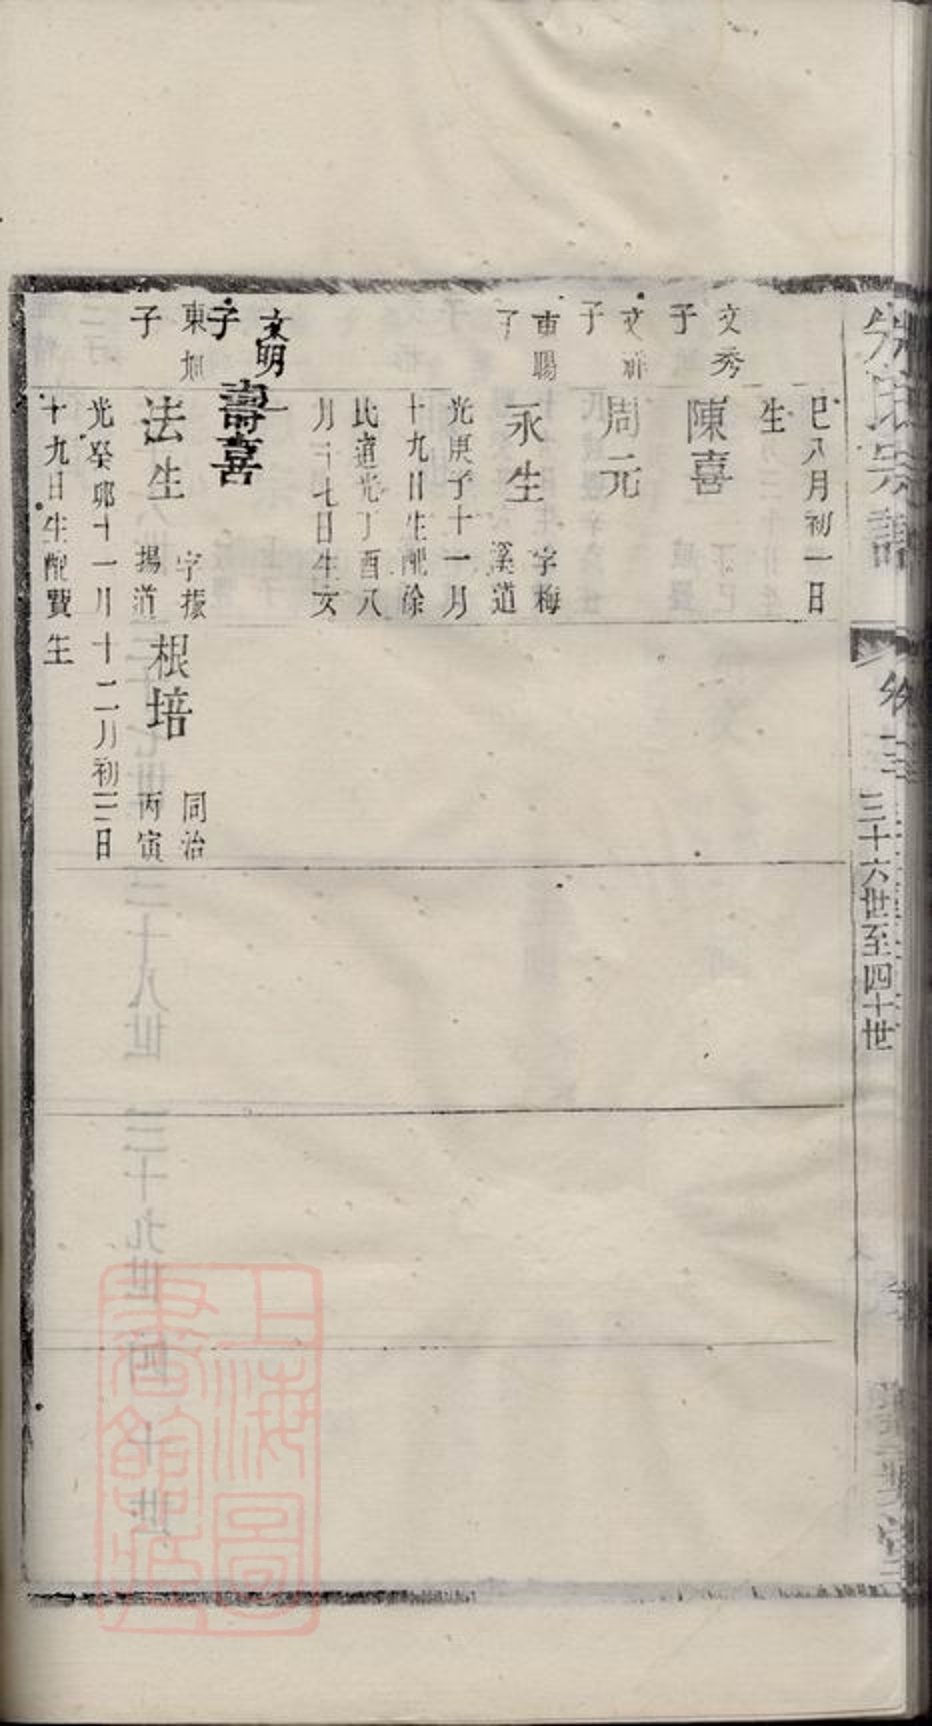 氏宗譜
卷三
三十六世至四十世
巳八月初一日
生
文秀
子
陳喜
文
子
周元
東賜
子
永生 字梅
溪道
光庚子十一月
十九日生配徐
氏道光丁酉八
月二十七日生女
一
文明
子
壽喜
東旭
子
法生 字振
揚道
光癸卯十一月
十九日生配賢
根培 同治
丙寅
十二月初三日
生
上海圖
書館藏